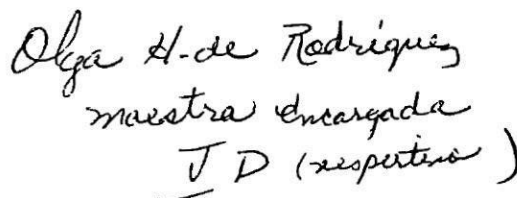 Olga H. de Rodríguez
maestra encargada
I D (vespertino)